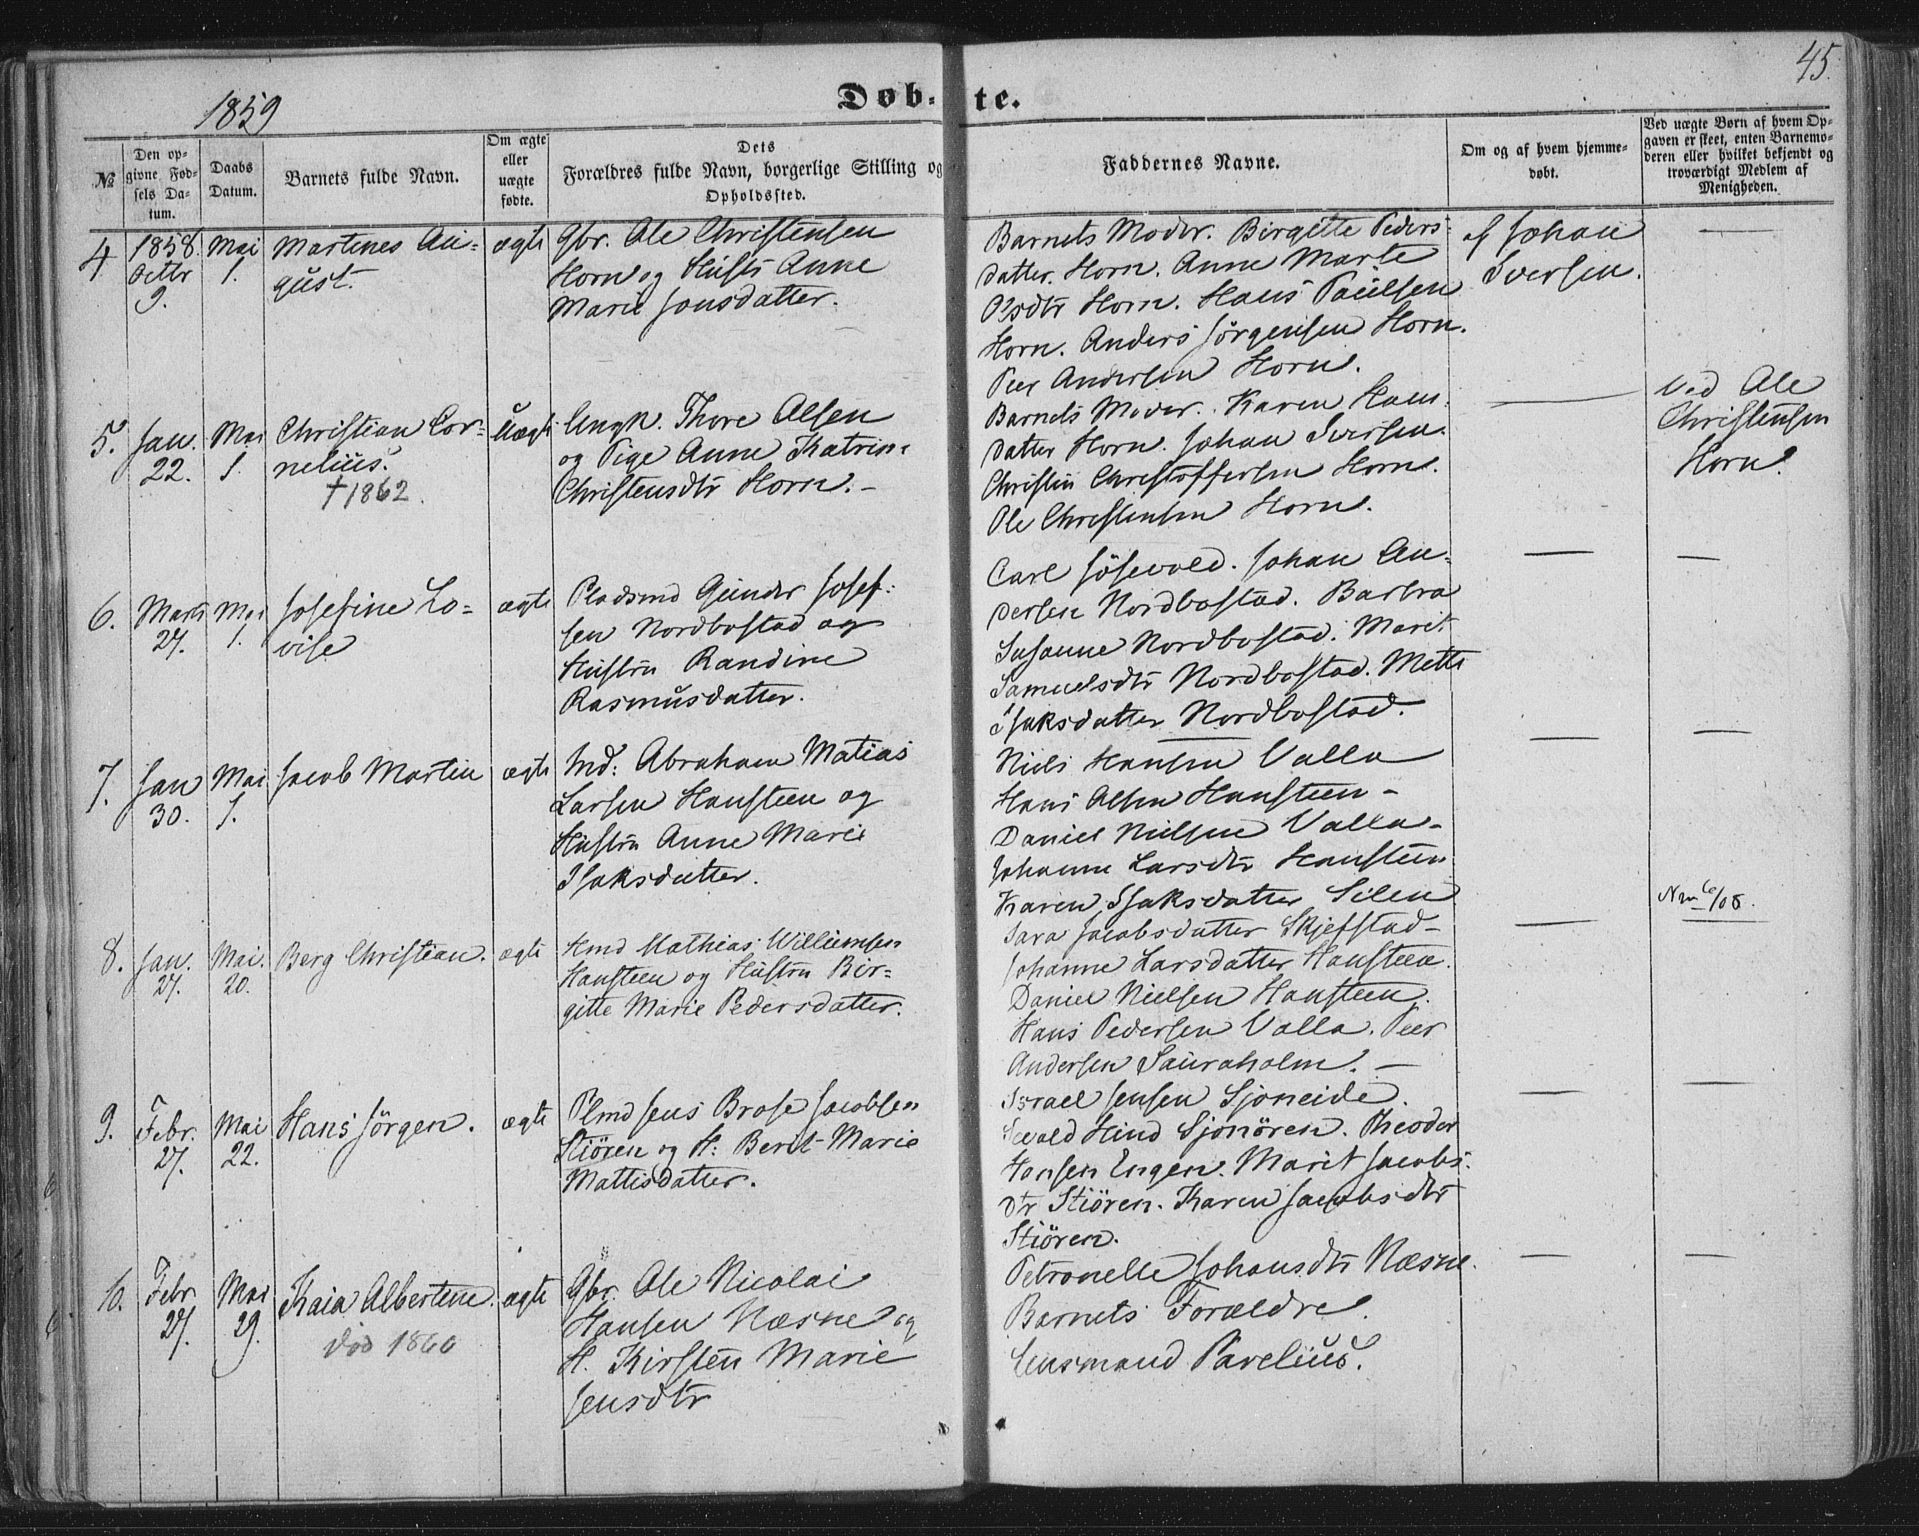 45.
1859
Døb-te.
№
Den op-
givne Fød-
sels Da-
tum.
Daabs
Datum.
Barnets fulde Navn.
Om ægte
eller
uægte
fødte.
Dets
Forældres fulde Navn, borgerlige Stilling og
Opholdssted.
Faddernes Navne.
Om og af hvem hjemme-
døbt.
Ved uægte Børn af hvem Op-
gaven er skeet, enten Barnemo-
deren eller hvilket bekjendt og
troværdigt Medlem af
Menigheden.
4
1858.
Octbr
9.
Mai
1.
Martines Au-
gust.
ægte
Gbr. Ole Christensen
Horn og Hustr Anne
Marie Jonsdatter.
Barnets Moder. Birgitte Peders-
datter Horn. Anne Marte
Olsdtr Horn. Hans Paulsen
Horn. Anders Jørgensen Horn.
Peer Andersen Horn.
af Johan
Iversen.
5.
Jan.
22.
Mai
1.
Christian Cor-
nelius.
†1862.
Uægte
Ungk. Thore Olsen
og Pige Anne Katrin-
Christensdtr Horn.-
Barnets Moder. Karen Hans-
datter Horn. Johan Iversen.
Christin Christoffersen Horn.
Ole Christensen Horn.
Ved Ole
Christensen
Horn.
6.
Marts
27.
Mai
1.
Josefine Lo-
vise
ægte
Pladsmd Gunder Josef-
sen Nordbostad og
Hustru Randine
Rasmusdatter.
Carl Jøsevold. Johan An-
dersen Nordbostad. Barbra
Susanne Nordbostad. Marit
Samuelsdtr Nordbostad. Mette
Isaksdatter Nordbostad.
7.
Jan
30.
Mai
1.
Jacob Martin
ægte
Ind: Abraham Matias
Larsen Hansteen og
Hustru Anne Marie
Isaksdatter.
Niels Hansen Valla
Hans Olsen Hansteen-
Daniel Nielsen Valla-
Johanne Larsdtr Hansteen
Karen Isaksdatter Silen
8.
Jan.
27.
Mai.
20.
Berg Christian.
ægte
Hmd Mathias Williumsen
Hansteen og Hustru Bir-
gitte Marie Pedersdatter.
Sara Jacobsdatter Skjefstad-
Johanne Larsdatter Hansteen.
Daniel Nielsen Hansteen.
Hans Pedersen Valla. Peer
Andersen Sauraholm.-
6/08.
9.
Febr.
27.
Mai
22.
Hans Jørgen.
ægte
Plmd Jens Brose Jacobsen
Stiøren og H: Berit Marie
Mattisdatter.
Israel Jensen Sjoneide.
Sevald Hind Sjonøren. Theodor
Hansen Engen. Marit Jacobs-
dtr Stiøren. Karen Jacobsdtr
Stiøren.
10.
Febr
27.
Mai
29.
Kaia Albertine.
død 1860
ægte
Gbr. Ole Nicolai
Hansen Næsne og
H. Kirsten Marie
Jensdtr
Petronelle Johansdtr Næsne.
Barnets Forældre.
Lensmand Parelius.